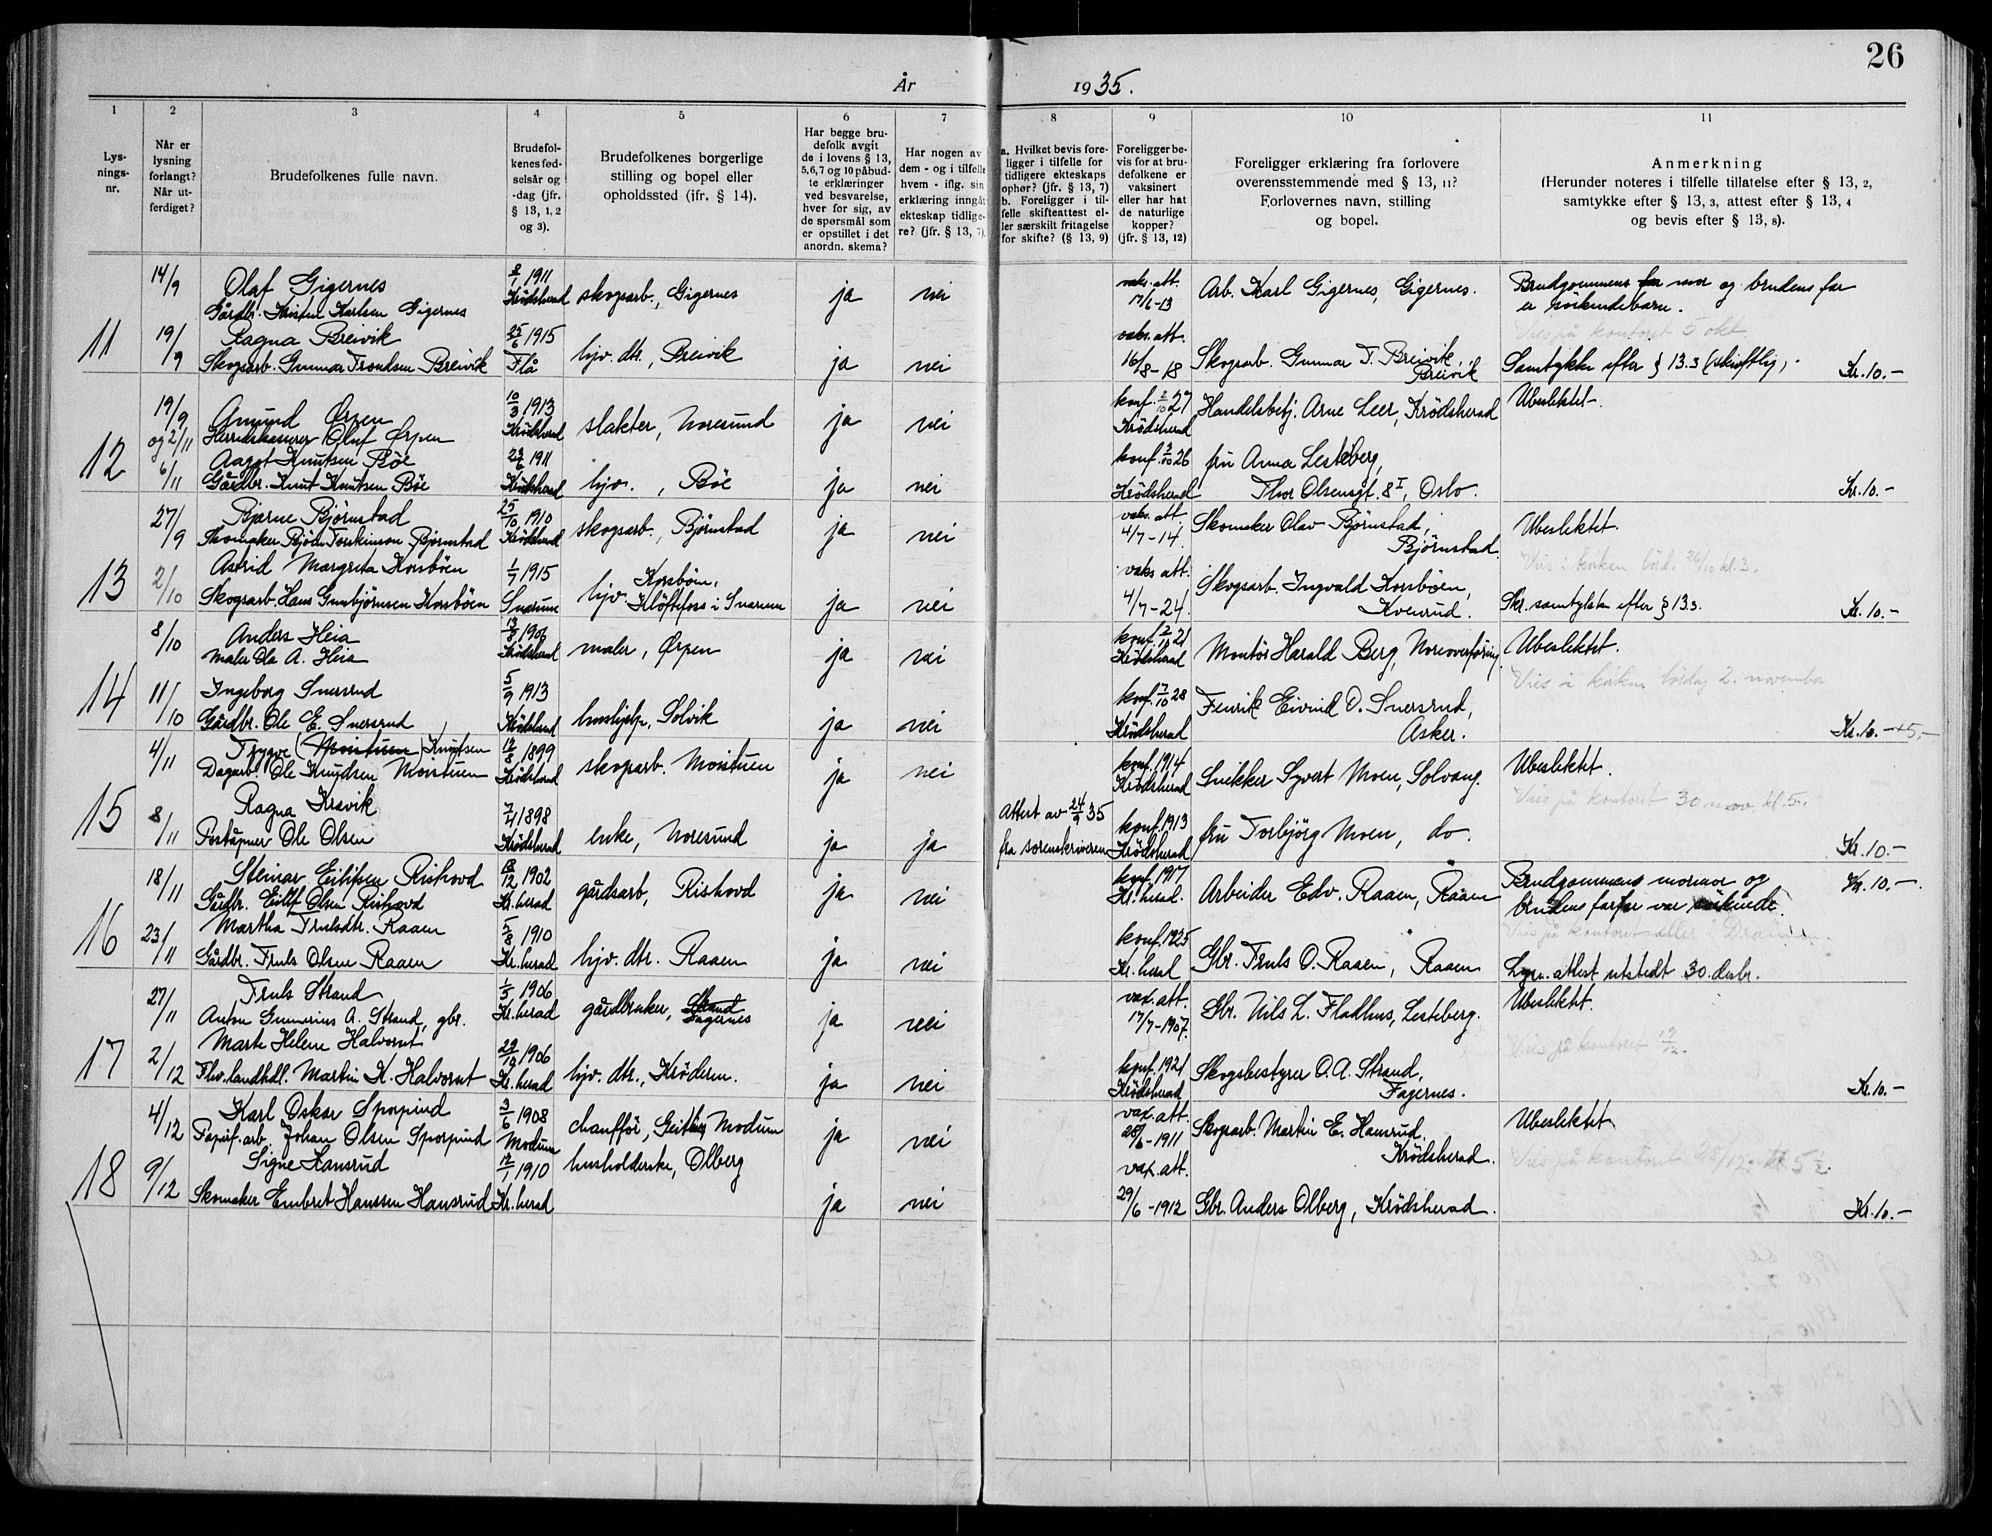 26
År 1935.
1
2
3
4
5
6
7
8
9
10
11
Lys-
nings-
nr.
Når er
lysning
forlangt?
Når ut-
ferdiget?
Brudefolkenes fulle navn.
Brudefol-
kenes fød-
selsår og
-dag (jfr.
§ 13, 1, 2
og 3).
Brudefolkenes borgerlige
stilling og bopel eller
opholdssted (jfr. § 14).
Har begge bru-
defolk avgit
de i lovens § 13,
5,6,7 og 10 påbud-
te erklæringer
ved besvarelse,
hver for sig, av
de spørsmål som
er opstillet i det
anordn. skema?
Har nogen av
dem - og i tilfelle
hvem - iflg. sin
erklæring inngåt
ekteskap tidlige-
re? (jfr. § 13, 7).
a. Hvilket bevis fore-
ligger i tilfelle for
tidligere ekteskaps
ophør? (jfr. § 13, 7)
b. Foreligger i til-
felle skifteattest el-
ler særskilt fritagelse
for skifte? (§ 13, 9)
Foreligger be-
vis for at bru-
defolkene er
vaksinert
eller har hat
de naturlige
kopper?
(jfr. § 13, 12)
Foreligger erklæring fra forlovere
overensstemmende med § 13, 11?
Forlovernes navn, stilling
og bopel.
Anmerkning
(Herunder noteres i tilfelle tillatelse efter § 13, 2,
samtykke efter § 13, 3, attest efter § 13, 4
og bevis efter § 13, 8).
14/9 Olaf Gigernes 8/1 1911 skogsarb., Gigernes ja nei vaks. att. Arb. Karl Gigernes, Gigernes. Brudgommens far mor og brudens far
Gårdbr. Kristen Karlsen Gigernes Krødsherad 17/6-13 er søskendebarn.
11 19/9 Ragna Breivik 25/6 1915 hjv. dtr., Breivik vaks. att. Vies på kontoret 5 okt
Skogsarb. Gunnar Trondsen Breivik Flå ja nei 16/8-18 Skogsarb. Gunnar T. Breivik, Breivik Samtykke efter § 13.3 (skriftlig) Kr. 10.-
19/9 Amund Ørpen 10/3 1913 slakter, Noresund ja nei konf. 2/10 27 Handelsbetj. Arne Leer, Krødsherad Ubeslektet.
og 2/11 Herredskasserer Oluf Ørpen Krødsherad Krødsherad
12 6/11 Aagot Knutsen Bøe 23/6 1911 hjv., Bøe konf. 3/10 26 fru Anna Lesteberg,
Gårdbr. Knut Knutsen Bøe Krødsherad ja nei Krødsherad Thor Olsensgt. 8 I, Oslo. Kr. 10.-
27/9 Bjarne Bjørnstad 25/10 1910 skogsarb., Bjørnstad ja nei vaks. att. Skomaker Olav Bjørnstad, Ubeslektet.
Skomaker Bjørn Torkinson Bjørnstad Krødsherad 4/7-14. Bjørnstad.
13 2/10 Astrid Margreta Korsbøen 1/7 1915 hjv. Korsbøen, vaks att. Skogsarb. Ingvald Korsbøen, Vies i kirken lørd. 26/10 kl. 3.
Skogsarb. Hans Gunbjørnsen Korsbøen Snarum Kløftefoss i Snarum ja nei 4/7-24. Kvenrud. Skr. samtykke efter § 13.3. Kr. 10.-
8/10 Anders Heia 13/8 1906 maler, Ørpen ja nei konf. 2/10 21 Montør Harald Berg, Noreoverføring. Ubeslektet.
Maler Ola A. Heia Krødsherad Krødsherad
14 11/10 Ingeborg Snersrud 5/9 1913 hushjelp, Solvik konf. 7/10 28 Fenrik Eivind O. Snersrud, Vies i kirken lørdag 2. november
Gårdbr. Ole E. Snersrud Krødsherad ja nei Krødsherad Asker. Kr. 10.- +5.-
4/11 Trygve (Moistuen) Knutsen 12/8 1899 skogsarb. Moistuen ja nei konf. 1914 Snekker Syvert Moen, Solvang. Ubeslektet.
Dagarb. Ole Knudsen Moistuen Krødsherad Krødsherad
15 8/11 Ragna Kravik 7/4 1898 enke, Noresund Attest av 24/9 35 konf. 1913 fru Torbjörg Moen, do. Vies på kontoret 30 nov kl. 5.
Poståpner Ole Olsen Krødsherad ja ja fra sorenskriveren Krødsherad Kr. 10.-
18/11 Steinar Eilifsen Rishovd 18/12 1902 gårdsarb, Rishovd ja nei konf. 1917 Arbeider Edv. Raaen, Raaen Brudgommens mormor og Kr. 10.-
Gårdbr. Eilif Olsen Rishovd Kr.herad Kr.herad. brudens farfar var søskende.
16 23/11 Martha Trulsdtr. Raaen 5/8 1910 hjv. dtr. Raaen konf. 1925 Gbr. Truls O. Raaen, Raaen Vies på kontoret eller i
Gårdbr. Truls Olsen Raaen Kr.herad ja nei Kr.herad Lysn. attest utstedt 30. desbr.
27/11 Truls Strand 1/5 1906 gårdbruker, Strand ja nei vax. att. Gbr. Nils L. Fladhus, Lesteberg. Ubeslektet.
Anton Gunnerius A. Strand, gbr. Kr.herad Fagernes 17/7-1907.
17 2/12 Marte Helene Halvorsrut 29/10 1906 hjv. dtr., Krøderen. konf. 1921 Skogsbestyrer O. A. Strand, Vies på kontoret
Fhv. landhdl. Martin K. Halvorsrut Kr.herad ja nei Krødsherad Fagernes. Kr. 10.-
4/12 Karl Oskar Sporpind 3/6 1908 chauffør, Geithus Modum ja nei vax. att. Skogsarb. Martin E. Hansrud. Ubeslektet
Papirf.arb. Johan Olsen Sporpind Modum 28/6-1911 Krødsherad.
18 9/12 Signe Hansrud 12/1 1910 husholderske, Olberg vax. att. Vies på kontoret 28/12 kl 5 1/2
Skomaker Embret Hanssen Hansrud Kr.herad ja nei 29/6-1912 Gbr. Anders Olberg, Krødsherad. Kr. 10.-